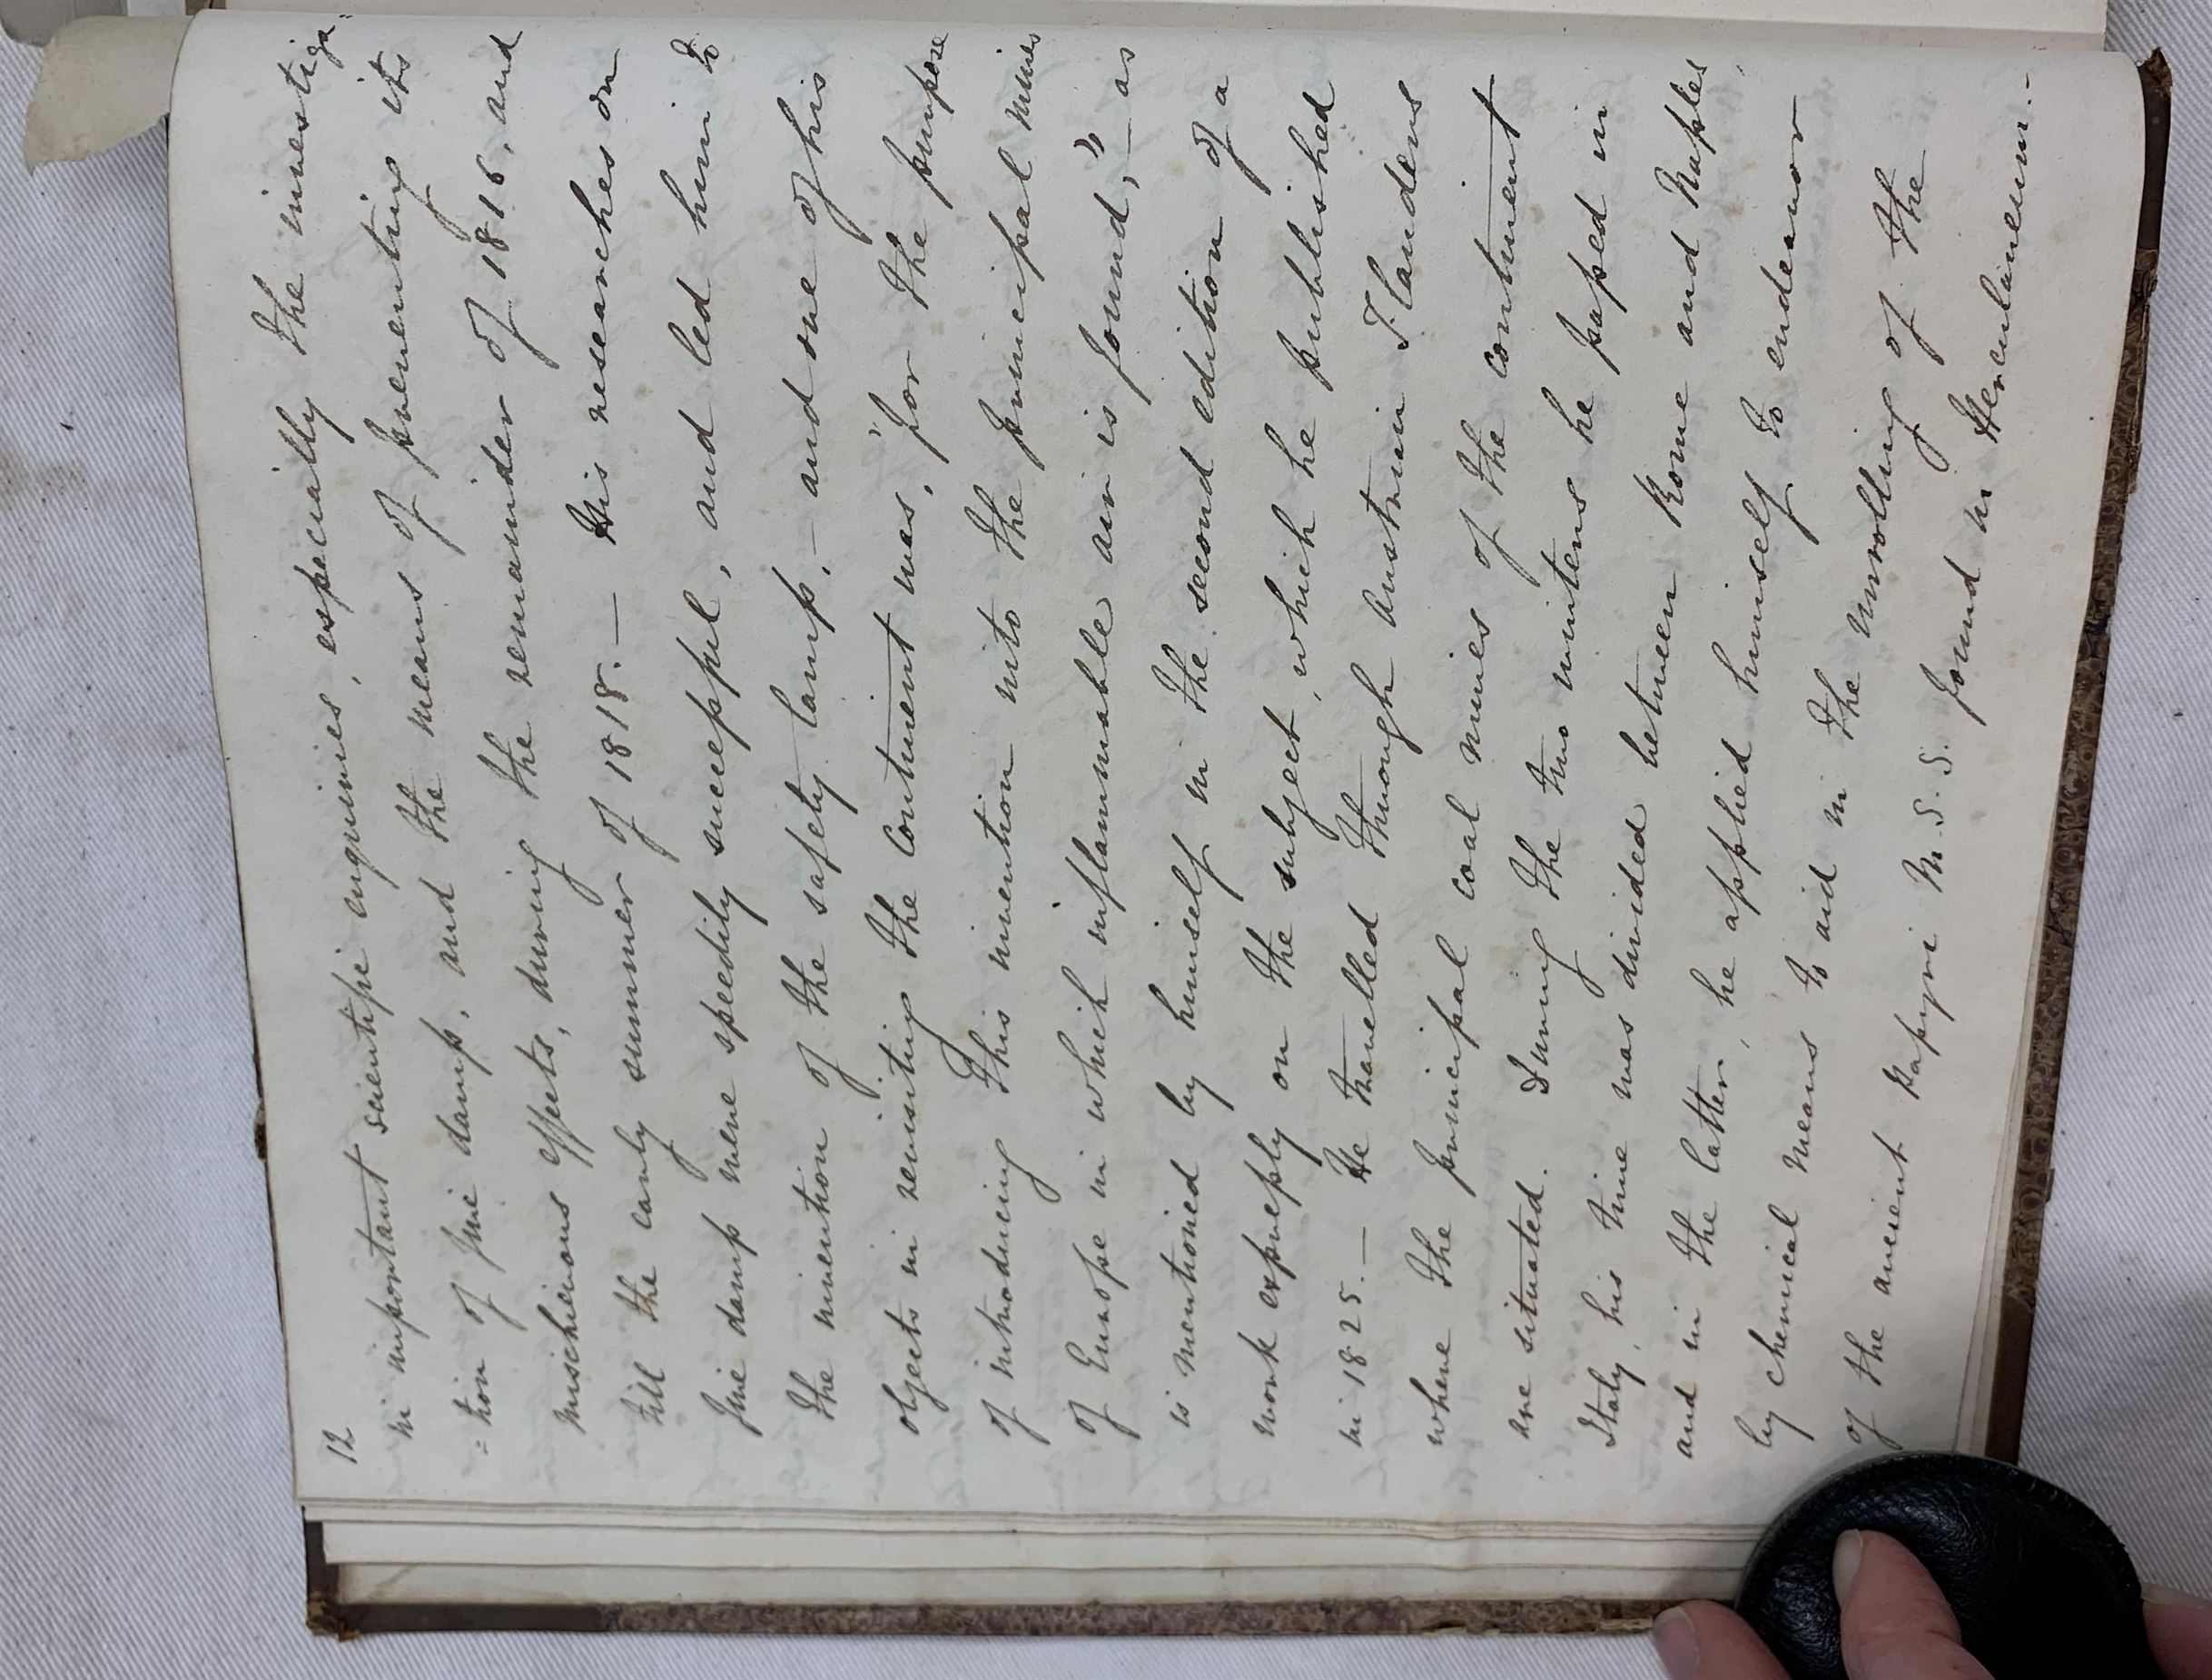 12
in important scientific enquiries, especially the investiga=
=tion of fire damp, and the means of preventing its
mischievous effects, during the remainder of 1816, and
till the early summer of 1818. — His researches on
fire damp were speedily successful, and led him to
the invention of the safety lamp, — and one of his
objects in revisiting the Continent was, "for the purpose
of introducing this invention into the principal mines
of Europe in which inflammable air is found," — as
is mentioned by himself in the second edition of a
work expressly on the subject, which he published
in 1825. — He travelled through Austrian Flanders
where the principal coal mines of the continent
are situated. During the two winters he passed in
Italy, his time was divided between Rome and Naples,
and in the latter, he applied himself to endeavor
by chemical means to aid in the unrolling of the
of the ancient Papyri M.S.S. found in Herculaneum. -